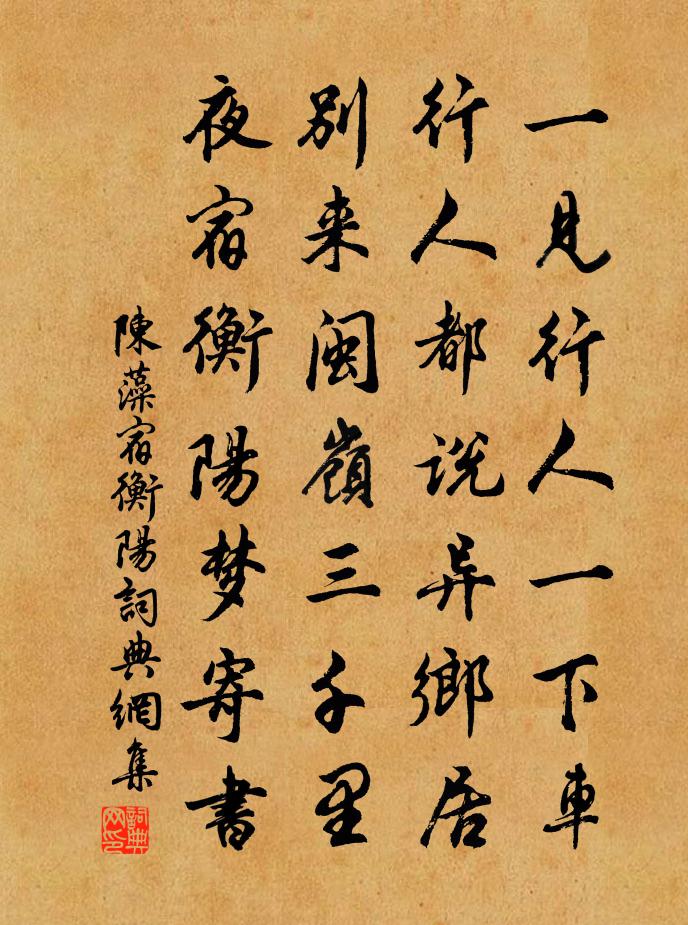 一見行人一下車
行人都说异鄉居
别来闽嶺三千里
夜宿衡陽梦寄書
陳藻宿衡陽詞典網集
詞典网印